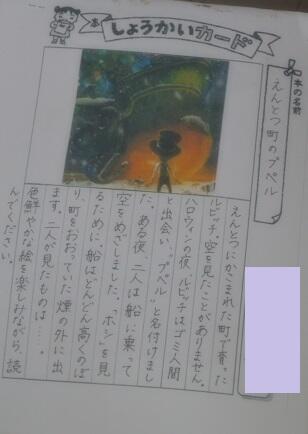 本
しょうかいカード
本の名前
えんとつ町のプペル
えんとつにかこまれた町で育った
ルビッチ。空を見たことがありません。
ハロウィンの夜、ルビッチはゴミ人間
と出会い、"プペル"と名付けまし
た。ある夜、二人は船に乗って
空をめざしました。「ホシ」を見
るために。船はどんどん高くのぼ
り、町をおおっていた煙の外に出
ます。二人が見たものは……。
色鮮やかな絵を楽しみながら、読
んでください。